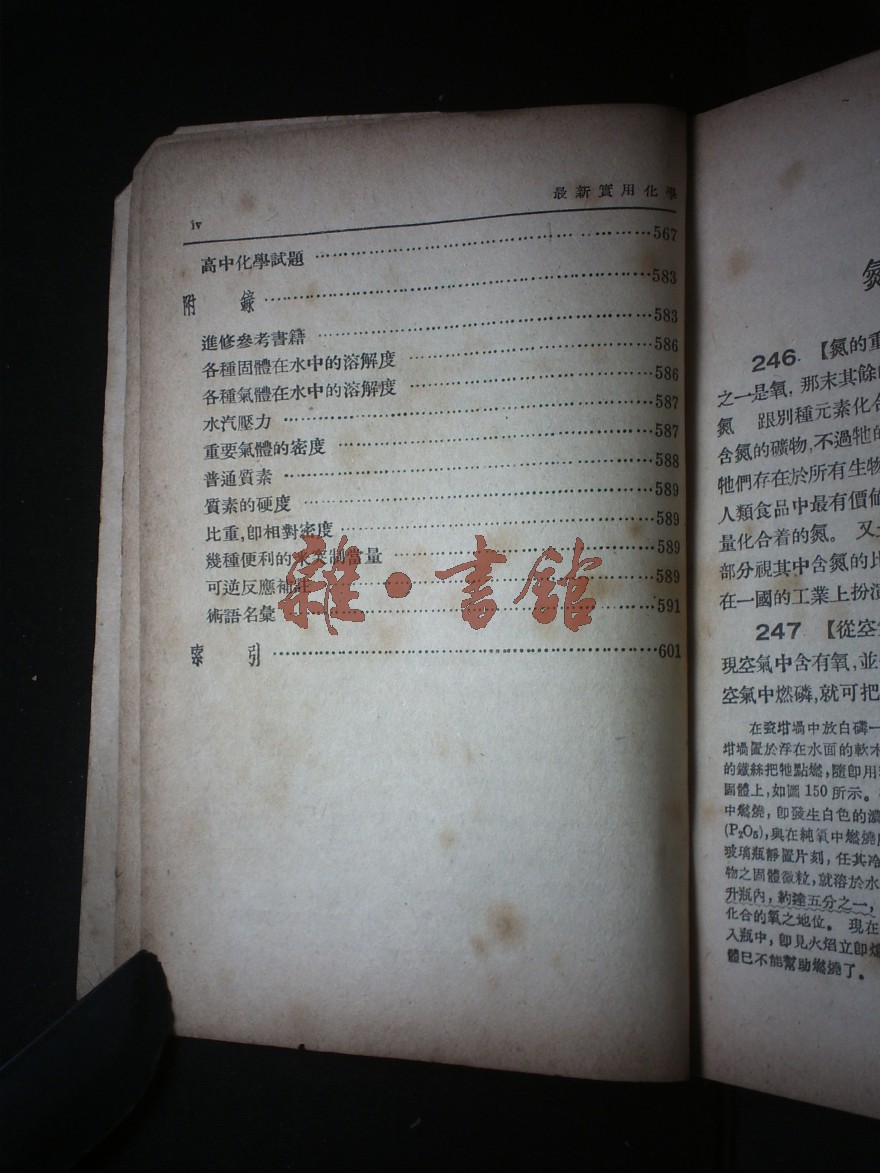 iv 最新實用化學
高中化學試題 ………… 567
附 錄 ………… 583
進修參考書籍 ………… 583
各種固體在水中的溶解度 ………… 586
各種氣體在水中的溶解度 ………… 586
水汽壓力 ………… 587
重要氣體的密度 ………… 587
普通質素 ………… 588
質素的硬度 ………… 589
比重,卽相對密度 ………… 589
幾種便利的米突制當量 ………… 589
可逆反應補註 ………… 589
術語名彙 ………… 591
索 引 ………… 601
雜·書館
氮
246. 【氮的重
之一是氧, 那末其餘的
氮 跟別種元素化合
含氮的礦物,不過牠的
牠們存在於所有生物
人類食品中最有價値
量化合着的氮。 又
部分視其中含氮的比
在一國的工業上扮演
247 【從空氣
現空氣中含有氧,並
空氣中燃磷,就可把
在瓷坩堝中放白磷一
坩堝置於浮在水面的軟木
的鐵絲把牠點燃,隨卽用
固體上,如圖150所示。
中燃燒, 卽發生白色的濃
(P₂O₅),與在純氧中燃燒
玻璃瓶靜置片刻, 任其冷
物之固體微粒,就溶於水
升瓶內,約達五分之一,
化合的氧之地位。 現在
入瓶中, 卽見火焰立卽熄
體已不能幫助燃燒了。